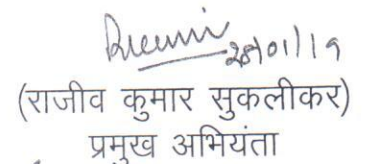 28/01/19
(राजीव कुमार सुकलीकर)
प्रमुख अभियंता